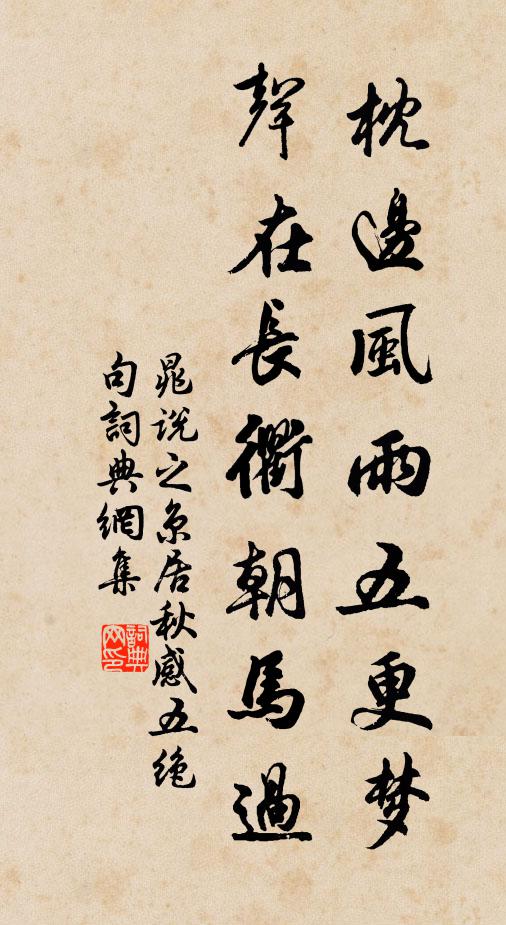 枕邊風雨五更梦
聲在長衢朝馬過
晁說之京居秋感五绝
句詞典網集
詞典网印